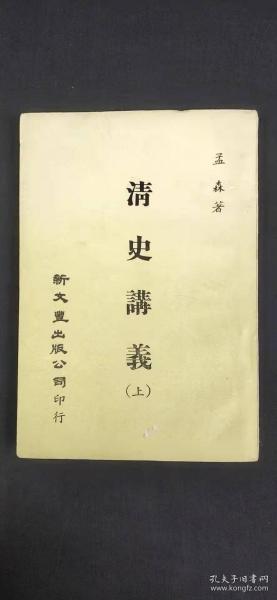 孟森著
清史講義
(上)
新文豐出版公司印行
孔夫子旧书网